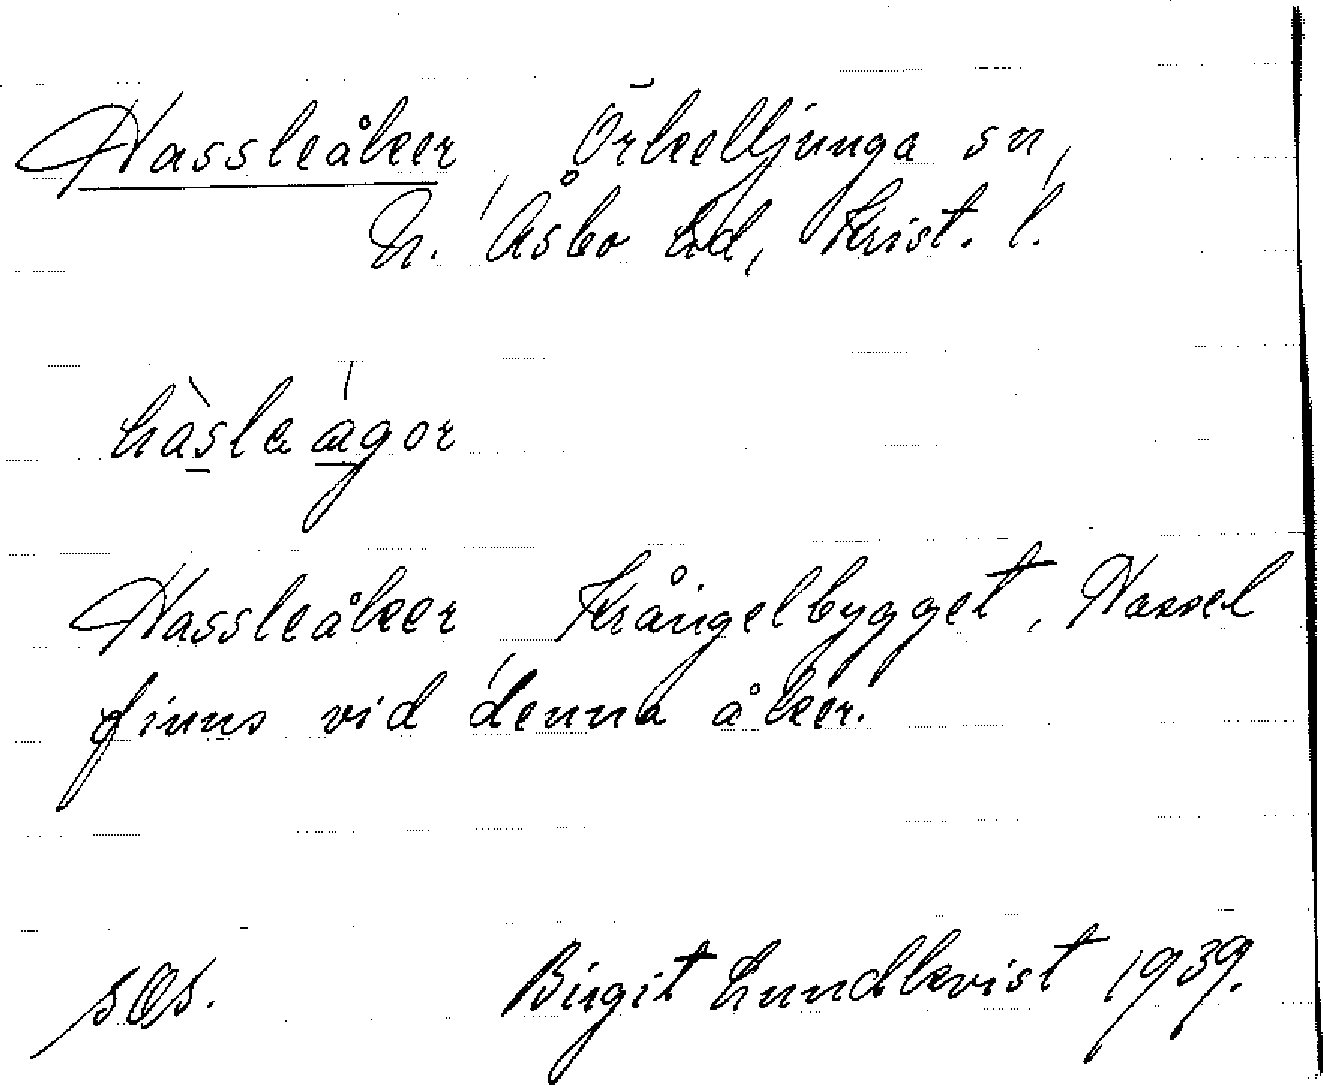 Hassleåker Örkelljunga sn,
N. Åsbo hd, Krist. l.
hàsleágor
Hassleåker Krångelbygget, Hassel
finns vid denna åker.
Birgit Lundkvist 1939.